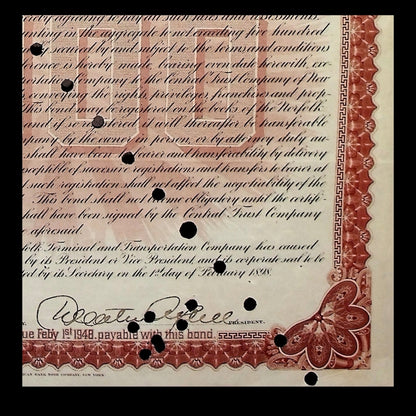 amounting in the aggregate to not exceeding five hundred
secured by and subject to the terms and conditions
hereof is hereby made, bearing even date herewith, ex-
Company to the Central Trust Company of New
conveying the rights, privileges, franchises and prop-
This bond may be registered on the books of the Norfolk
and if so registered will thereafter be transferable
by the owner in person, or by attorney duly au-
shall have been to bearer and transferability by delivery
susceptible of successive registrations and transfers to bearer at
such registration shall not affect the negotiability of the
This bond shall not become obligatory until the certif-
shall have been signed by the Central Trust Company
aforesaid.
folk Terminal and Transportation Company has caused
by its President or Vice President, and its corporate seal to be
ted by its Secretary on the 1st day of February 1898.
PRESIDENT.
ue Feby 1st 1948, payable with this bond.
ICAN BANK NOTE COMPANY, NEW YORK.